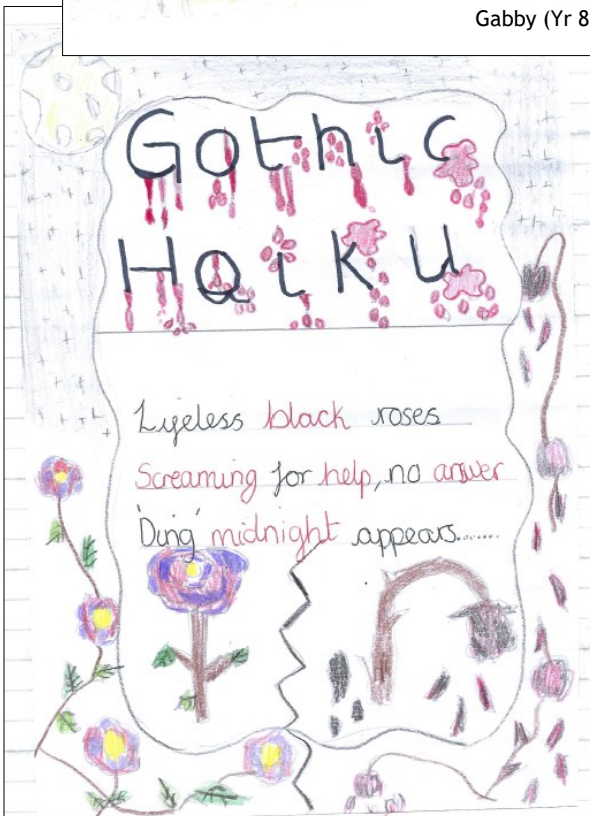 Gabby (Yr 8
Gothic
Haiku
Lifeless black roses
Screaming for help, no answer
'Ding' midnight appears......